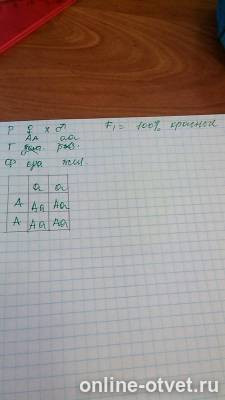 P ♀ x ♂ F₁ = 100% красные
AA aa
Г
Ф кра жел.
a a
A Aa Aa
A Aa Aa
online-otvet.ru